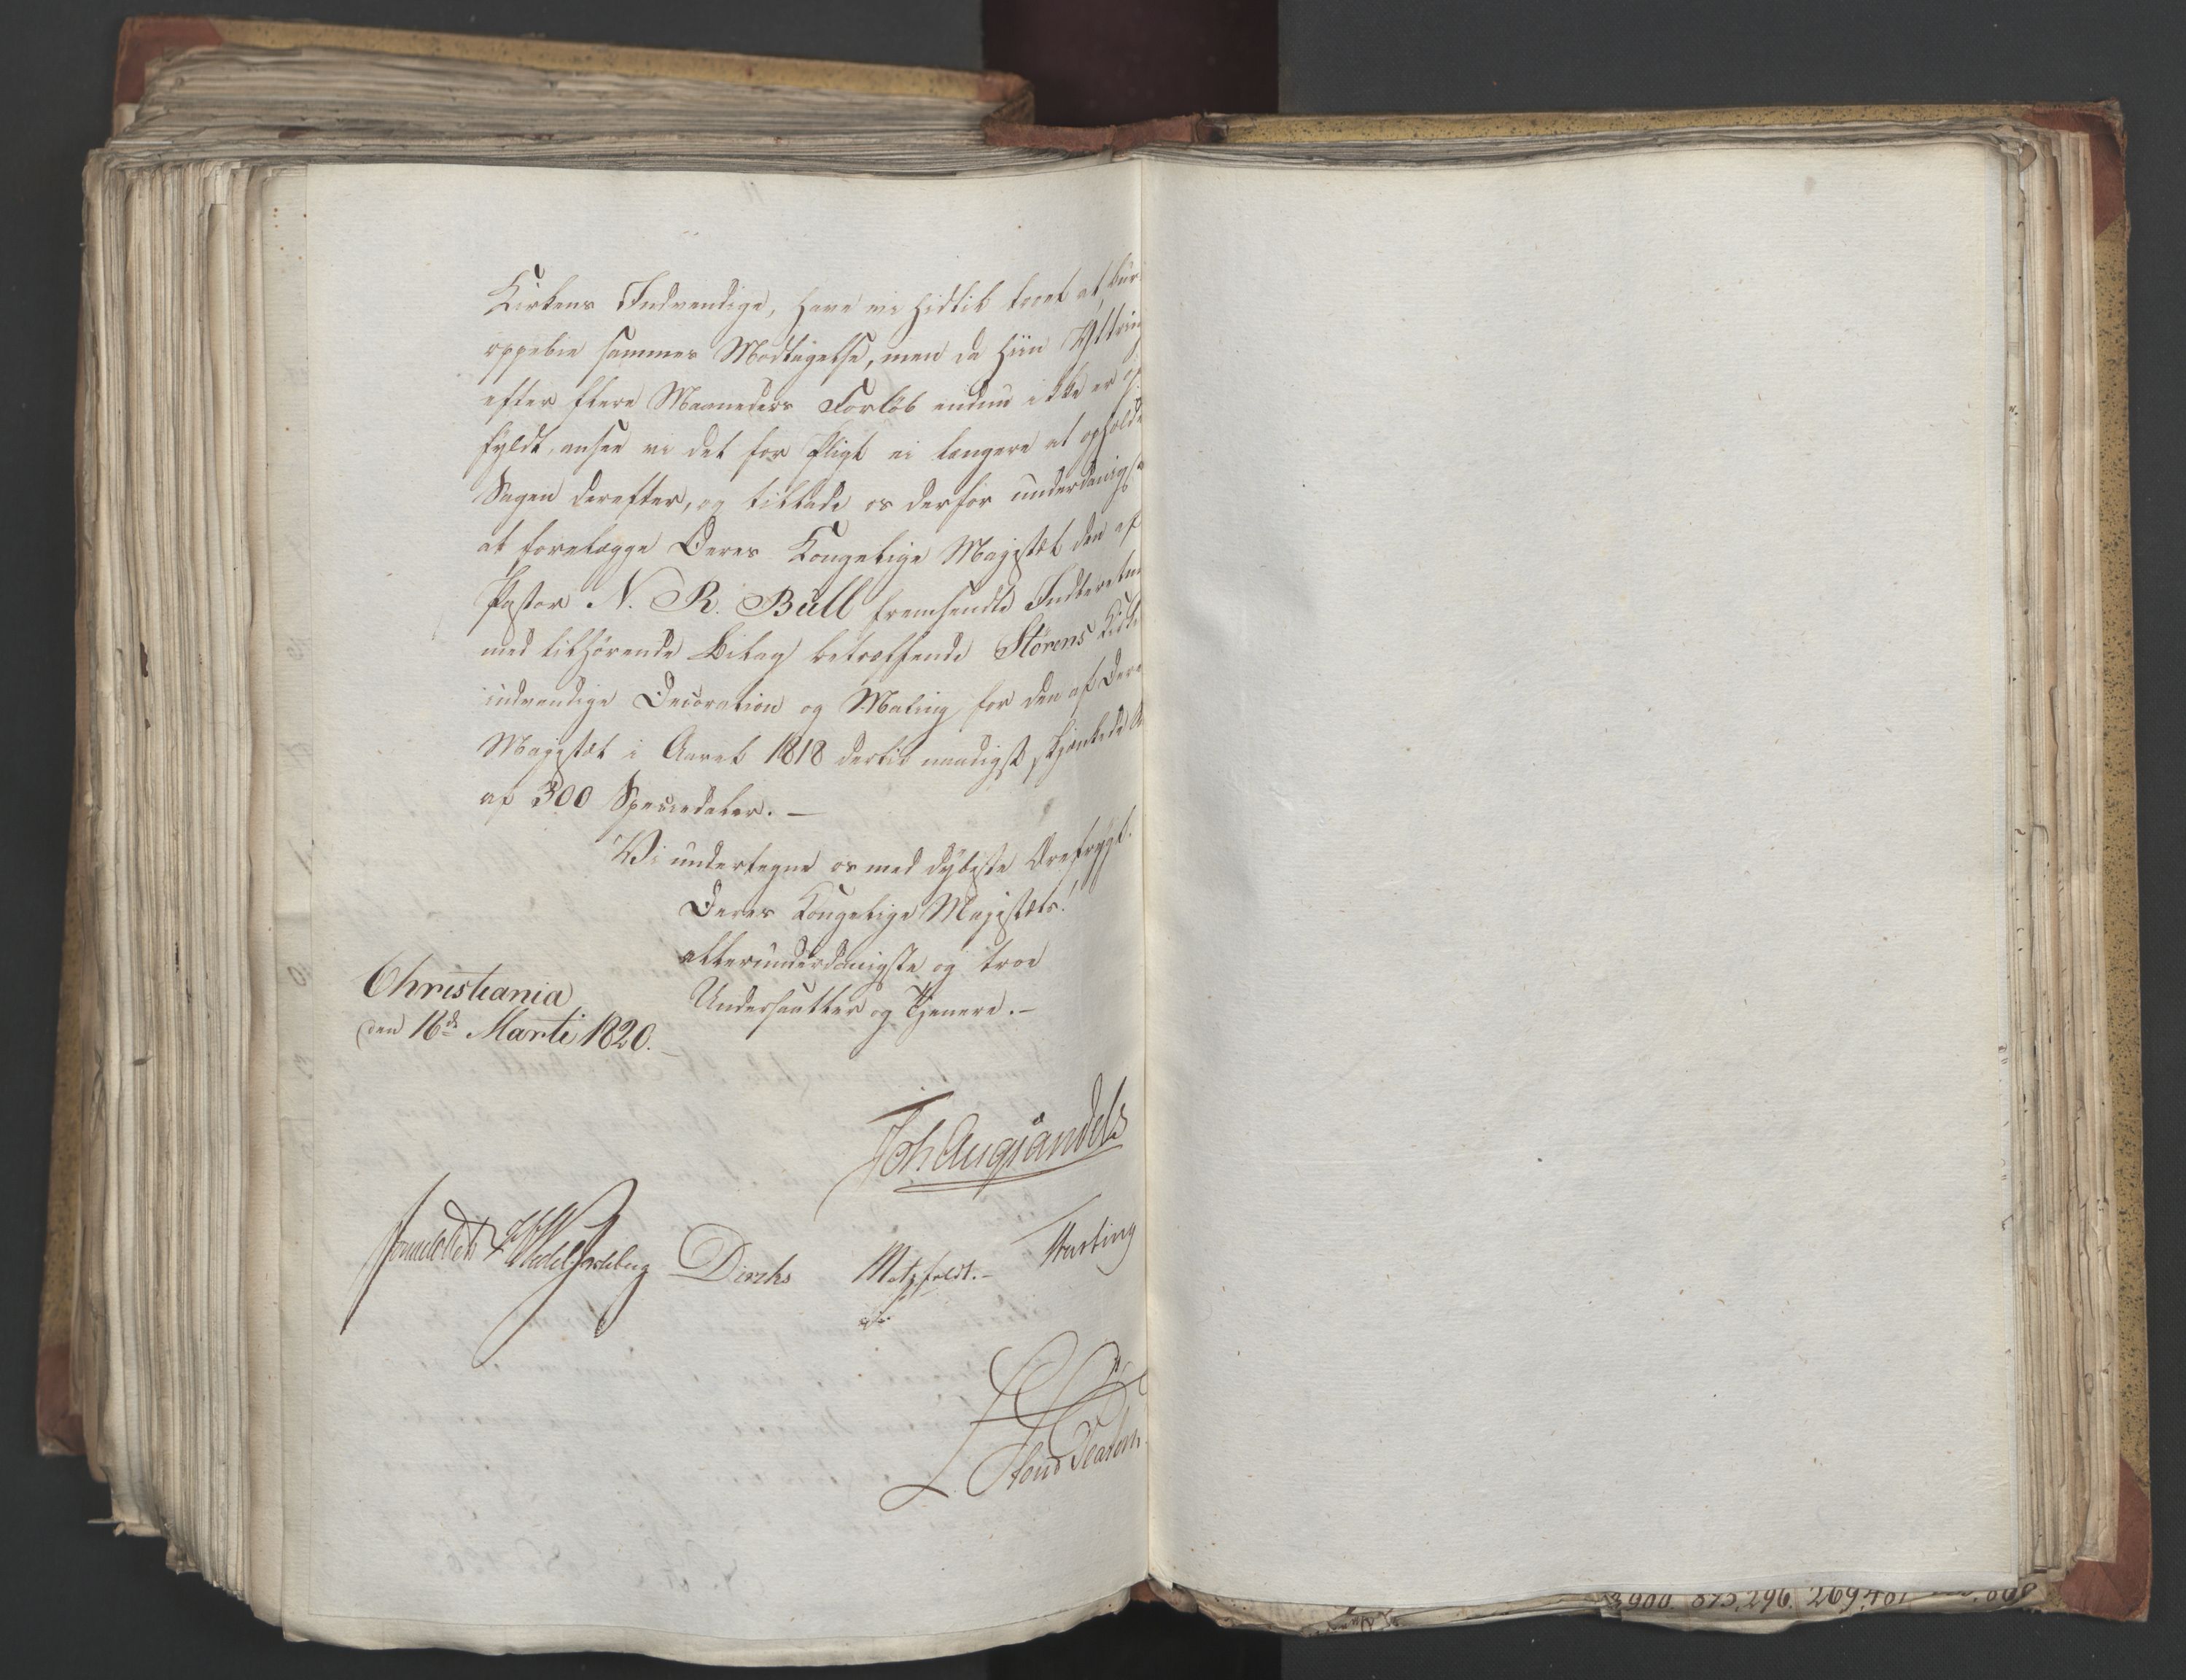 Kirkens Indvendige, have vi hidtil troet at bur
oppebie sammes Modtagelse, men da hiin Yttrin
efter flere Maaneders Forløb endnu ikke er op
fyldt, ansee vi det for Pligt ei længere at opholde
Sagen derefter, og tillade os derfor underdanigst
at forelægge Deres Kongelige Majestæt den af
Pastor N. R. Bull fremsendte Indberetn
med tilhørende Bilag betræffende Størens Kirke
indvendige Decoration og Maling for den af Dere
Majestæt i Aaret 1818 dertil naadigst skjænkede
af 300 Speciedaler. –
Vi undertegne os med dybeste Ærefrygt.
Deres Kongelige Majestæts!
allerunderdanigste og troe
Undersaatter og Tjenere. –
Christiania
den 16de Marti 1820. –
Joh Aug Sandels
Sommerhielm HWedel Jarlsberg Diriks Motzfeldt. – Krefting
L. Stoud Platou
3900 875,296. 269,401